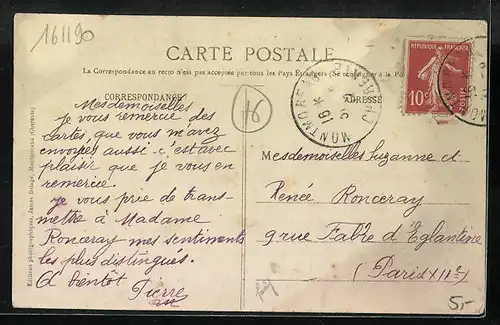 161190
CARTE POSTALE
La Correspondance au recto n'est pas acceptée par tous les Pays Étrangers (Se renseigner à la Poste)
CORRESPONDANCE
ADRESSE
Mesdemoiselles
je vous remercie des
cartes, que vous m'avez
envoyées aussi c'est avec
plaisir que je vous en
remercie.
je vous prie de trans-
mettre à Madame
Ronceray mes sentiments
les plus distingués.
A bientôt Pierre
Mesdemoiselles Suzanne et
Renée Ronceray
9 rue Fabre d'Eglantine
(Paris XIIe)
RÉPUBLIQUE FRANÇAISE
10c
POSTES
MONTMOREAU
CHARENTE
Editions photographiques, James Delage, Montmoreau (Charente)
76
5,-